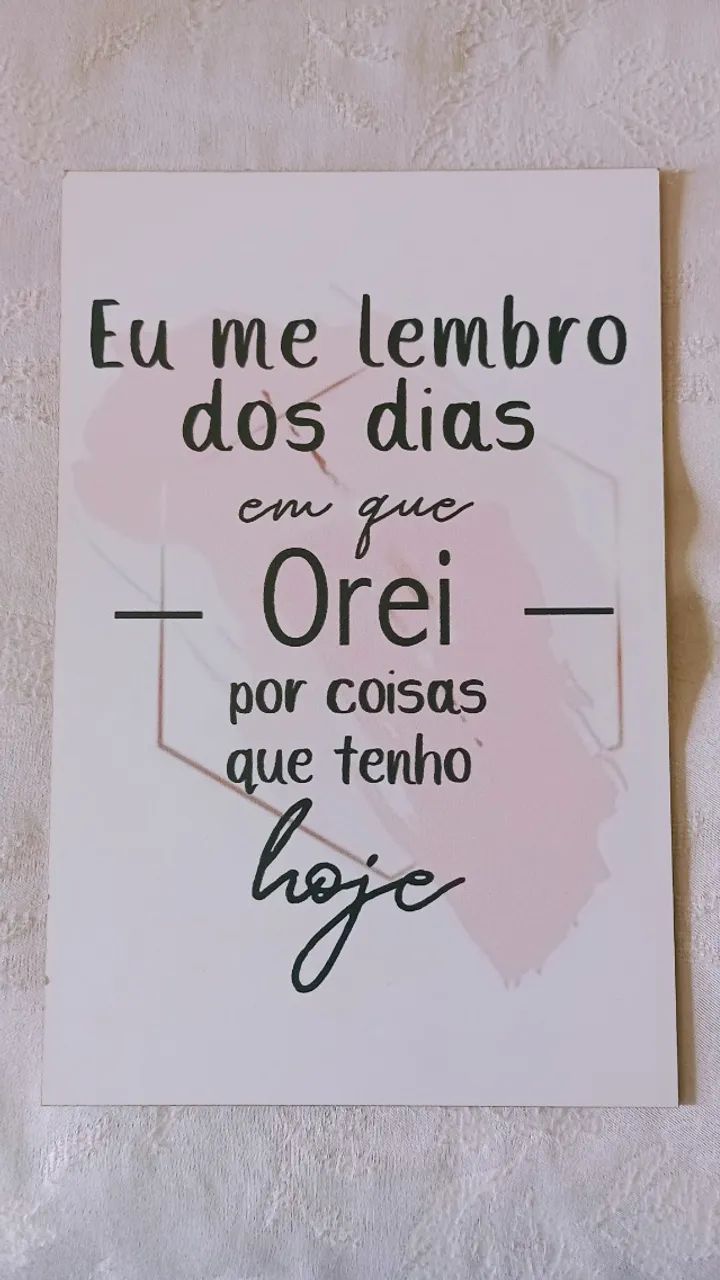 Eu me lembro
dos dias
em que
Orei
por coisas
que tenho
hoje